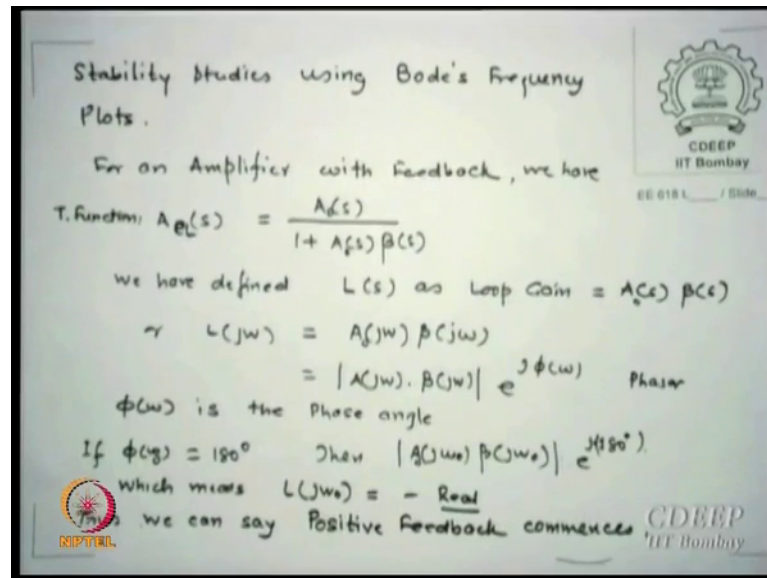 Stability Studies using Bode's Frequency
Plots.
CDEEP
IIT Bombay
For an Amplifier with Feedback, we have
EE 618 L____ / Slide_
T. Function, A_CL(s) = A(s) / (1 + A(s) β(s))
We have defined L(s) as Loop Gain = A(s) β(s)
L(jω) = A(jω) β(jω)
= |A(jω). β(jω)| e^jφ(ω) Phasor
φ(ω) is the Phase angle
If φ(ω₀) = 180° Then |A(jω₀) β(jω₀)| e^j(180°).
Which means L(jω₀) = - Real
we can say Positive Feedback commences
NPTEL
CDEEP
IIT Bombay